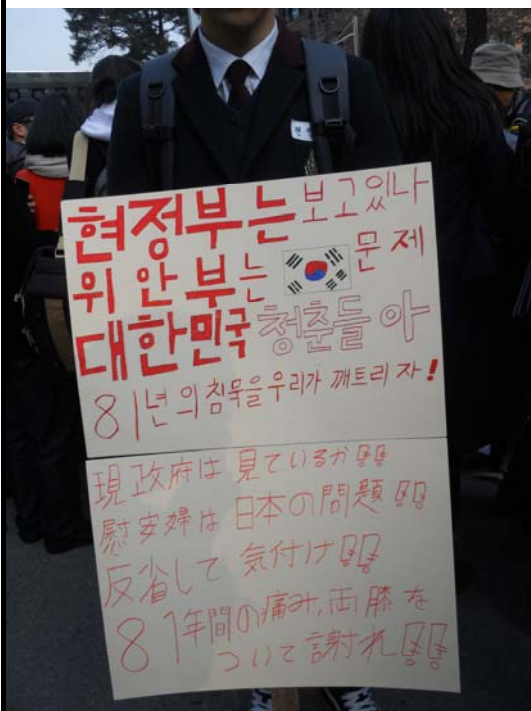 현정부는 보고있나
위안부는 문제
대한민국 청춘들아
81년의 침묵을 우리가 깨트리자!
現政府は見ているか!!
慰安婦は日本の問題!!
反省して気付け!!
81年間の痛み,両膝を
ついて謝れ!!